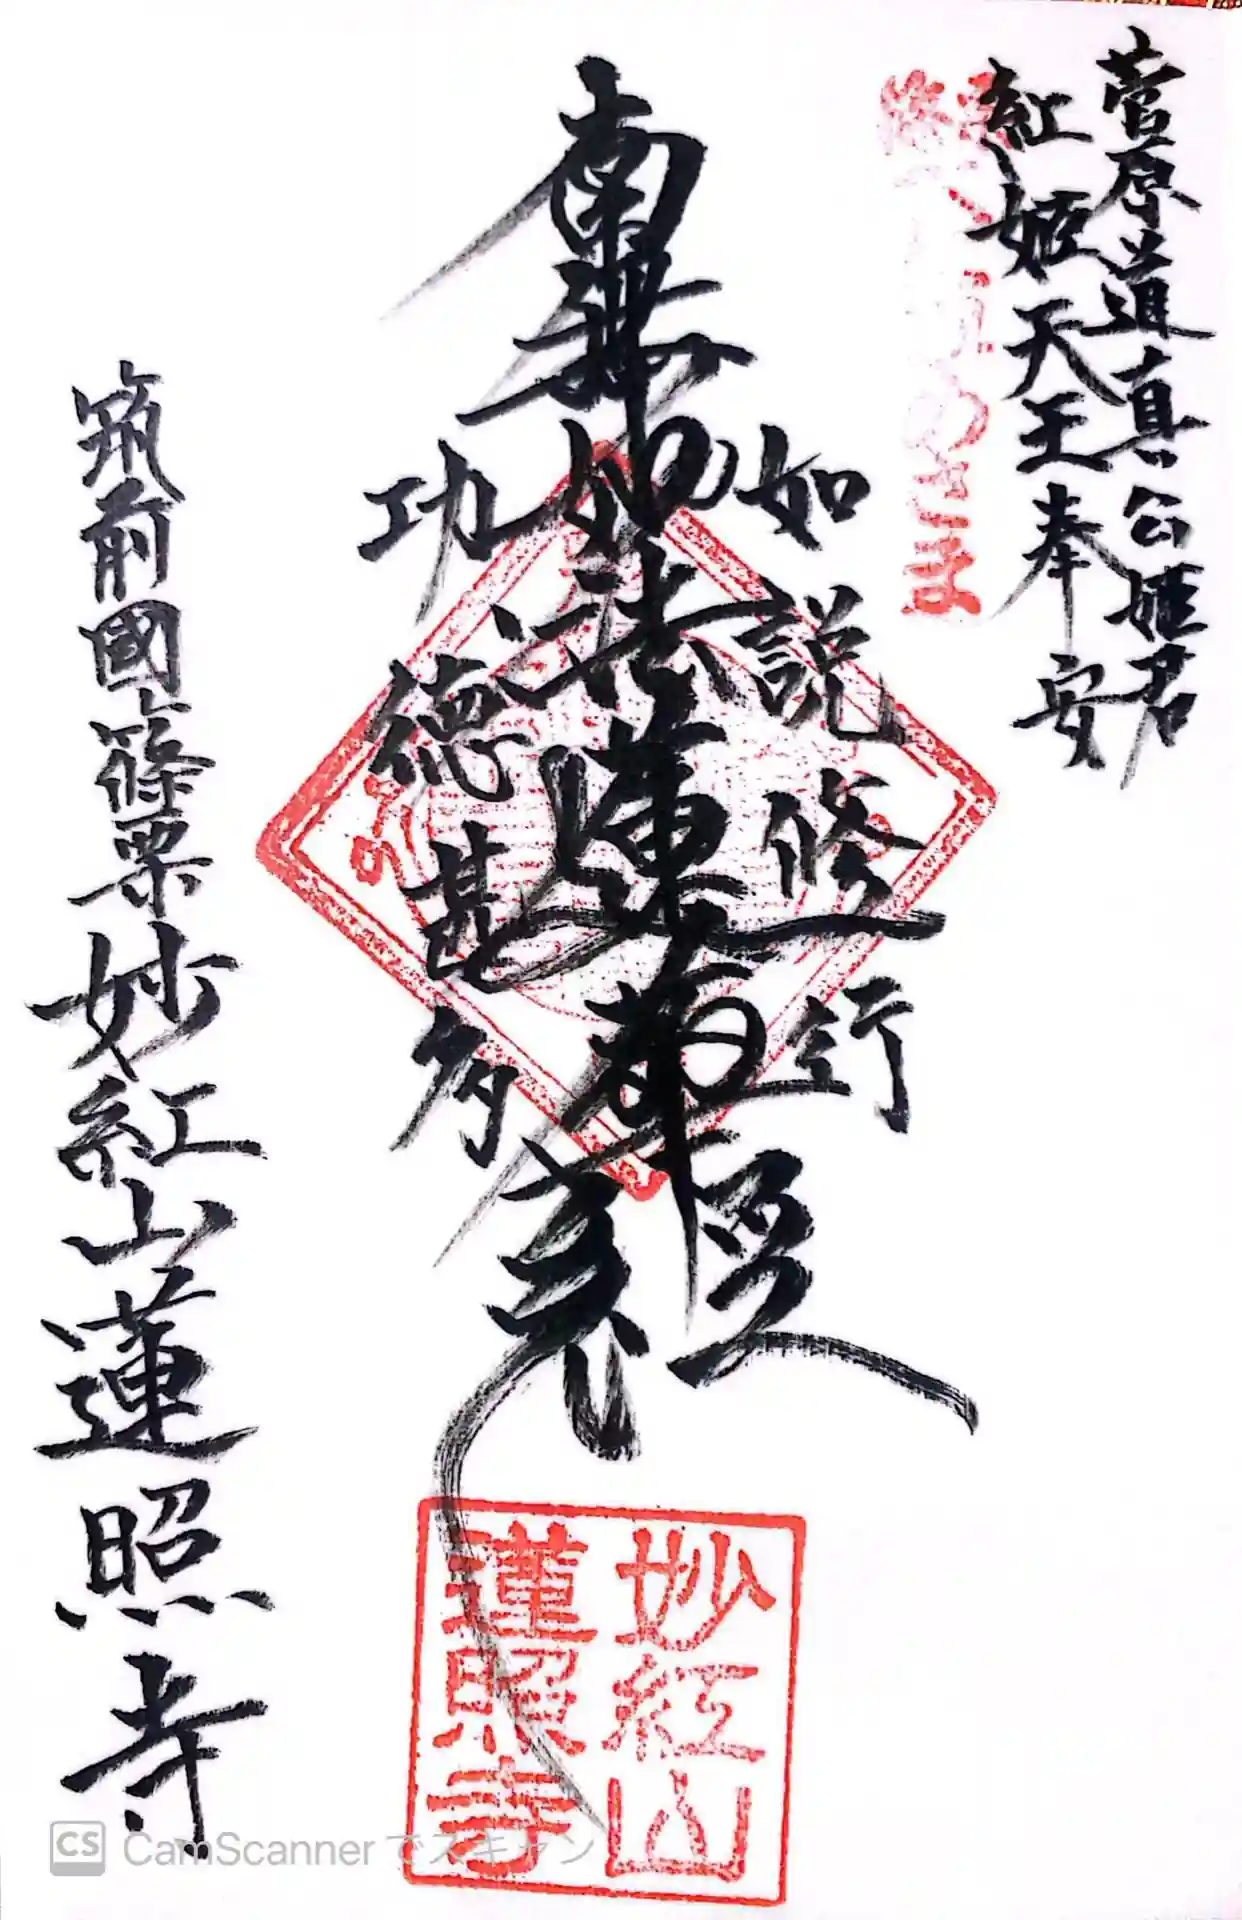 菅原道真公姫君
紅姫天王奉安
如説修行
南無妙法蓮華経
功徳甚多
筑前國篠栗妙紅山蓮照寺
妙紅山
蓮照寺
CS CamScannerでスキャン